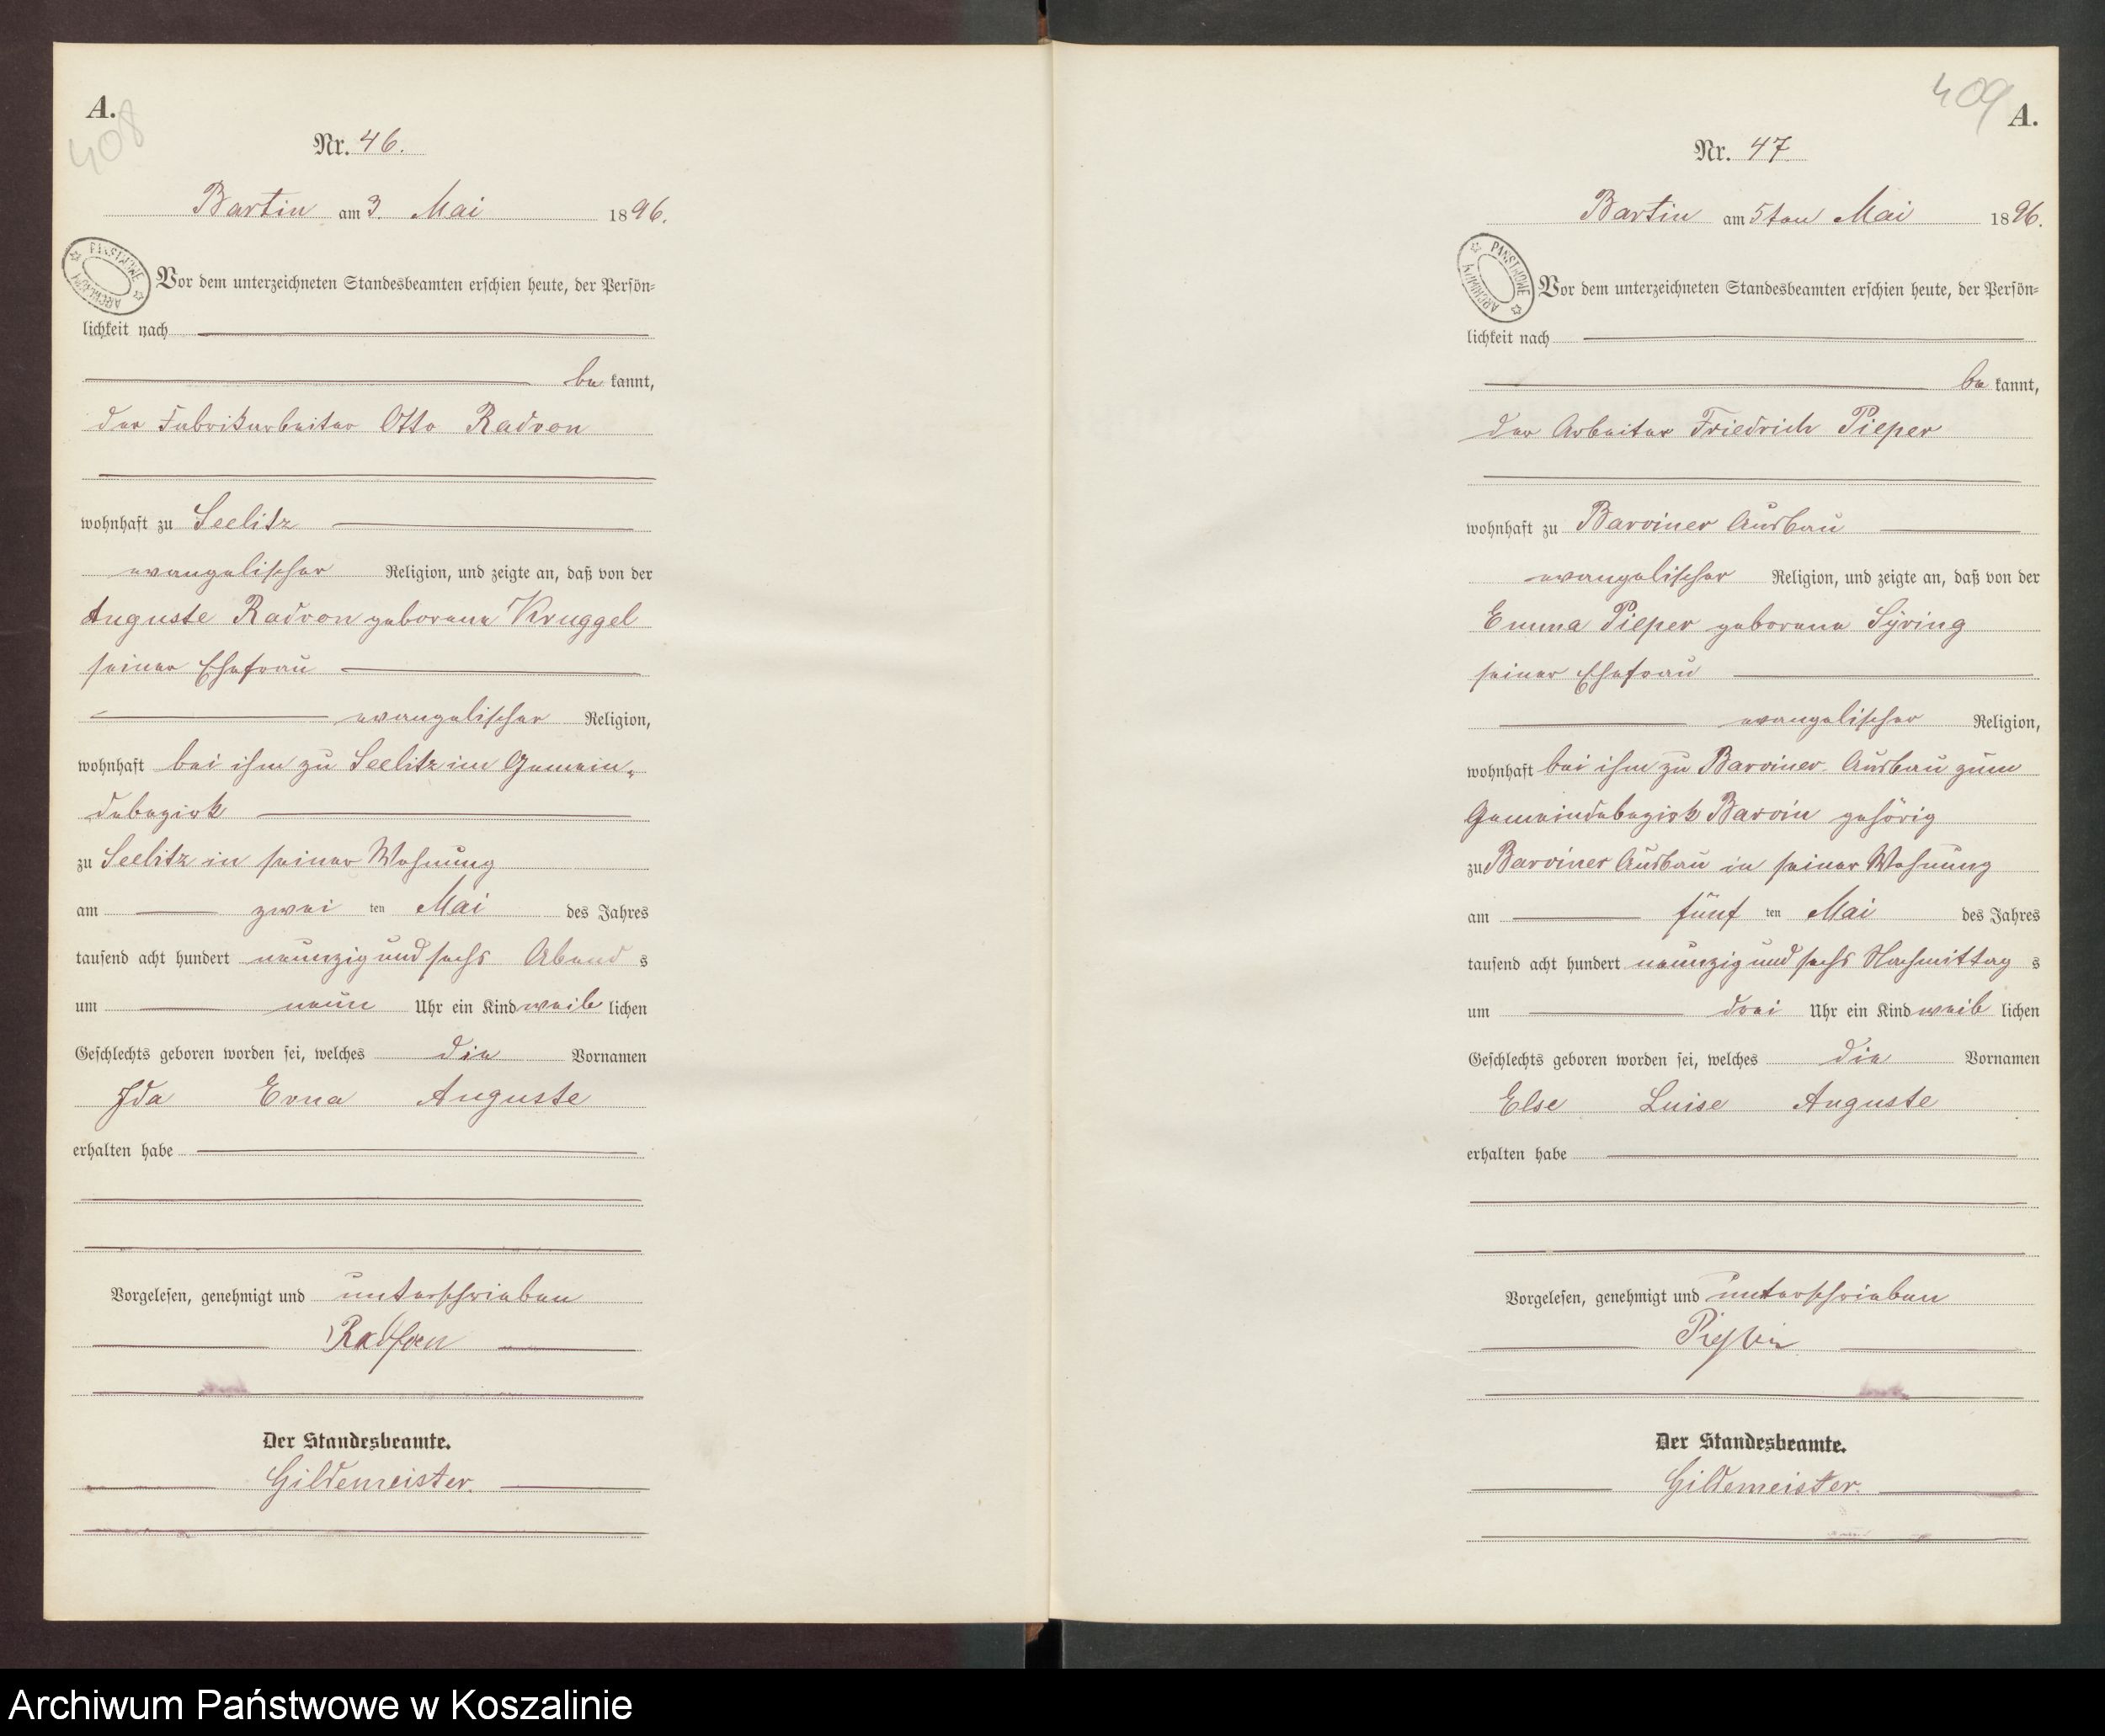 A.
408
Nr. 46.
Bartin am 3. Mai 1896.
PAŃSTWOWE ARCHIWUM
Vor dem unterzeichneten Standesbeamten erschien heute, der Persön-
lichkeit nach
be kannt,
der Fabrikarbeiter Otto Radron
wohnhaft zu Seelitz
evangelischer Religion, und zeigte an, daß von der
Auguste Radron geborene Kruggel
seiner Ehefrau
evangelischer Religion,
wohnhaft bei ihm zu Seelitz im Gemein-
debezirk
zu Seelitz in seiner Wohnung
am zwei ten Mai des Jahres
tausend acht hundert neunzig und sechs Abend s
um neun Uhr ein Kind weib lichen
Geschlechts geboren worden sei, welches die Vornamen
Ida Erna Auguste
erhalten habe
Vorgelesen, genehmigt und unterschrieben
Der Standesbeamte.
Gildemeister.
409
A.
Nr. 47
Bartin am 5ten Mai 1896.
PAŃSTWOWE ARCHIWUM
Vor dem unterzeichneten Standesbeamten erschien heute, der Persön-
lichkeit nach
be kannt,
der Arbeiter Friedrich Pieper
wohnhaft zu Barviner Ausbau
evangelischer Religion, und zeigte an, daß von der
Emma Pieper geborene Syring
seiner Ehefrau
evangelischer Religion,
wohnhaft bei ihm zu Barviner Ausbau zum
Gemeindebezirk Barvin gehörig
zu Barviner Ausbau in seiner Wohnung
am fünf ten Mai des Jahres
tausend acht hundert neunzig und sechs Nachmittag s
um drei Uhr ein Kind weib lichen
Geschlechts geboren worden sei, welches die Vornamen
Else Luise Auguste
erhalten habe
Vorgelesen, genehmigt und unterschrieben
Der Standesbeamte.
Gildemeister.
Archiwum Państwowe w Koszalinie